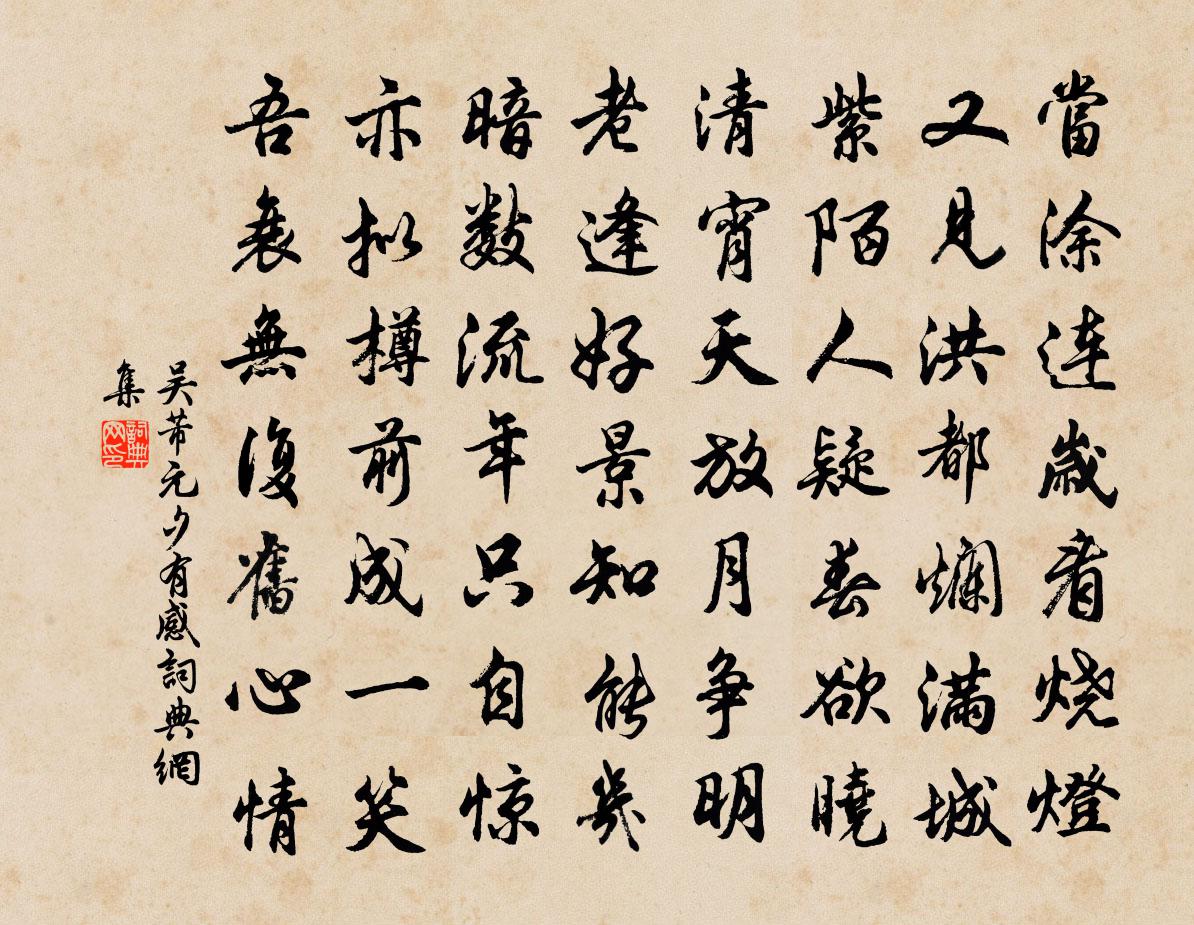 當涂連歲看燒燈
又見洪都爛滿城
紫陌人疑春欲曉
清宵天放月爭明
老逢好景知能幾
暗數流年只自惊
亦拟樽前成一笑
吾衰無復舊心情
吴芾元夕有感詞典網
集
詞典
网印